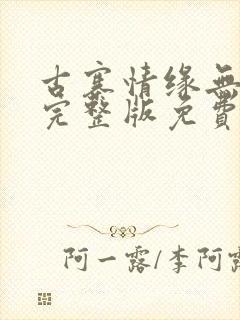 古寨情缘無
完整版免費
阿一露/李阿露